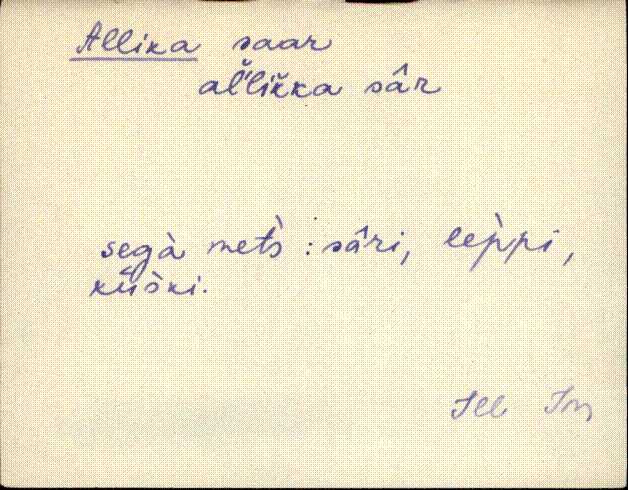 Allika saar
al̆lĭkka sâr
segà met̀s : sâri, lep̀pi,
kūs̀ki.